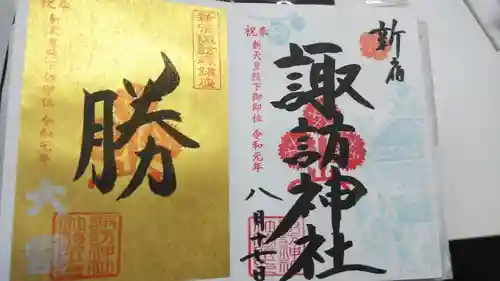 新宿
奉祝 新天皇陛下御即位 令和元年
諏訪神社
八月十七日
新宿諏訪神社
奉祝 新天皇陛下御即位 令和元年
勝